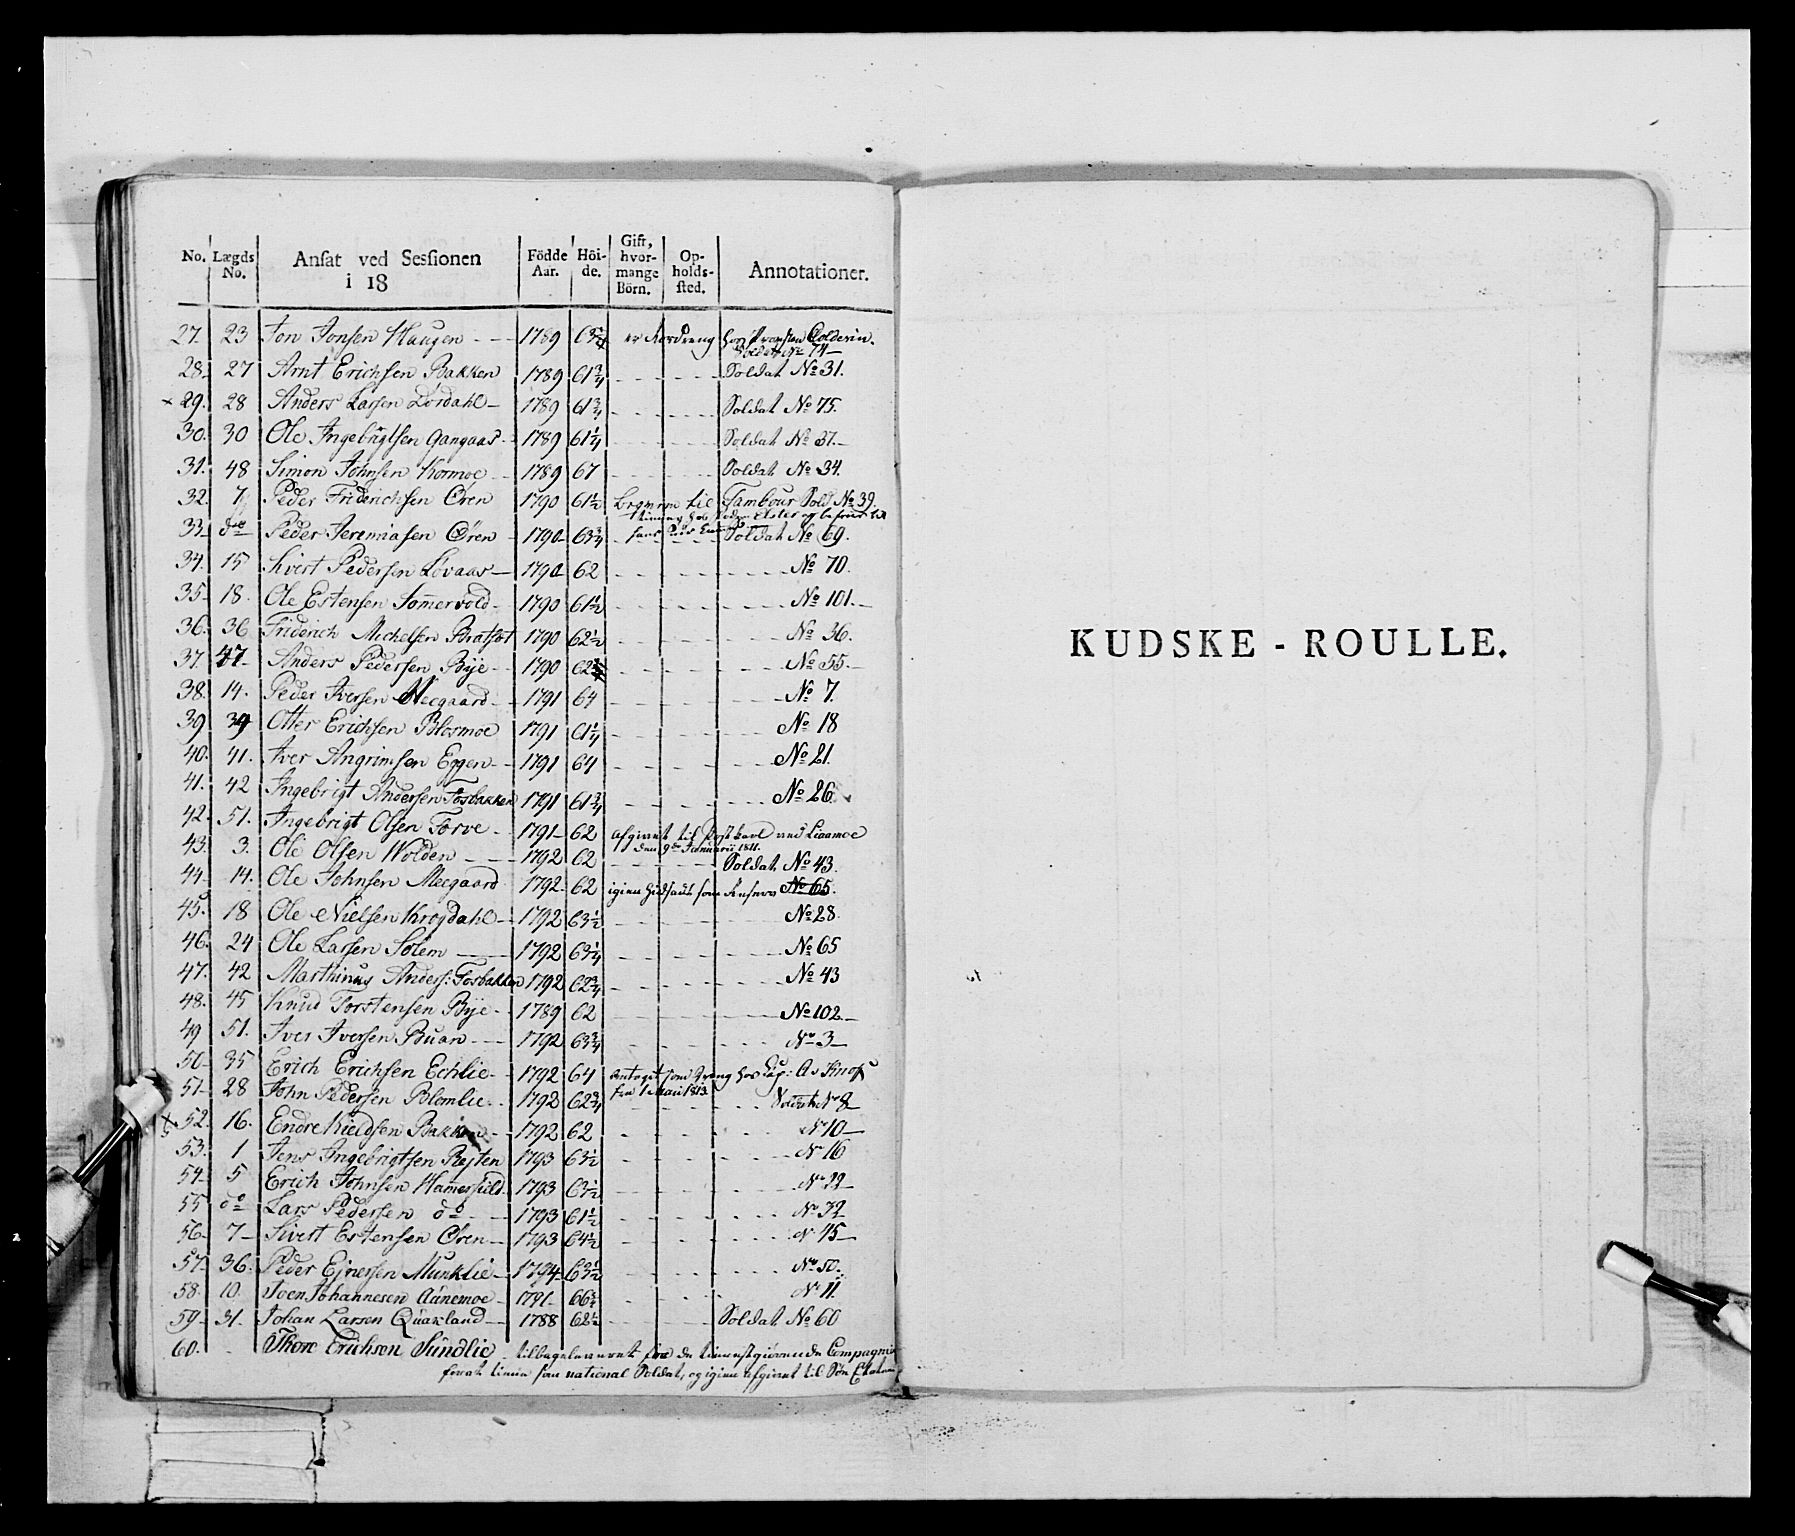 No. Lægds No. Ansat ved Sessionen i 18 Födde Aar. Höi-de. Gift, hvor-mange Börn. Op-holds-sted. Annotationer.
27. 23 Jon Jonsen Haugen 1789 er hos
Soldat No 74
28. 27 Arnt Erichsen Bakken 1789 61 3/4 Soldat No 31.
29. 28 Anders Larsen Dördahl 1789 61 3/4 Soldat No 75.
30. 30 Ole Ingebrigtsen Gangaas 1789 61 1/4 Soldat No 37.
31. 48 Simon Johnsen Kormoe 1789 67 Soldat No 34.
32. 7 Peder Friderichsen Ören 1790 61 1/2 til Tambour Sold No 39
33. do Peder Jeremiasen Ören 1790 63 3/4 Soldat No 69.
34. 15 Sivert Pedersen Lövaas 1790 62 No 70.
35. 18. Ole Estensen Somervold 1790 61 1/2 No 101.
36. 36 Friderich Michelsen Bratset 1790 62 1/2 No 36.
37. 47 Anders Pedersen Bye 1790 No 55.
38. 14. Peder Iversen Meegaard 1791 64 No 7.
39 39 Otter Erichsen Blosmoe 1791 61 1/4 No 18
40. 41. Iver Angrimsen Eggen 1791 64 No 21.
41. 42 Ingebrigt Andersen Fosbakken 1791 61 3/4 No 26.
42. 51. Ingebrigt Olsen Torve 1791 62 afgivet til Postkarl ved Liaamoe
den 9de Januarii 1811.
43. 3. Ole Olsen Wolden 1792 62 Soldat No 43.
44. 14. Ole Johnsen Meegaard 1792 62 igien som No 65.
45. 18 Ole Nielsen Krogdahl 1792 63 1/2 No 28.
46. 24 Ole Larsen Solem 1792 63 1/4 No 65
47. 42 Marthinus Anders: Fosbakken 1792 62 3/4 No 43
48. 45 Knud Torstensen Bye 1789 62 No 102
49 51. Iver Iversen Buan 1792 63 3/4 No 3
50. 35 Erich Erichsen Echlie 1792 64 antaget som Dreng hos Cap: v Knoff
fra 1 Maii 1813
51. 28 John Pedersen Blomlie 1792 62 3/4 Soldat No 8
52. 16. Endre Kieldsen Bakken 1792 62 No 10
53. 1 Jens Ingebrigtsen Rejten 1793 63 1/2 No 16
54. 5 Erich Johnsen Hamersield 1793 63 1/2 No 22
55 do Lars Pedersen do 1793 61 1/2 No 32
56. 7 Sivert Estensen Ören 1793 64 1/2 No 45
57. 36. Peder Ejnersen Munklie 1794 63 1/2 No 50.
58. 10. Joen Johannesen Aunemoe 1791 No 11.
59. 31. Johan Larsen Quarland 1788 62 1/2 Soldat No 60
60. Thore Erichsen Sundlie tilbageleveret fra de tienestgiörende Compagnie
for at tiene som national Soldat, og igien afgivet til Söe Etaten
KUDSKE - ROULLE.